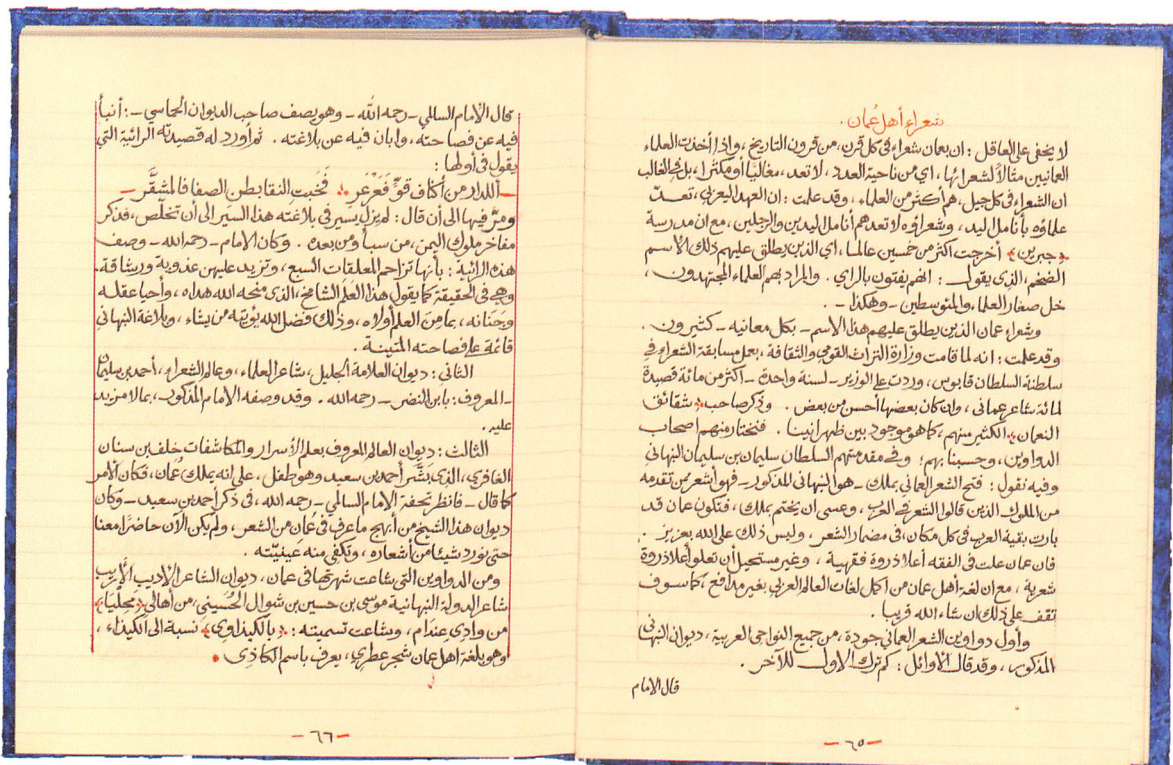 شعراء أهل عُمان.
لا يخفى على العاقل: ان بعمان شعراء في كل قرن، من قرون التاريخ، واذا أخذت العلماء
العمانيين مثالاً لشعرائها، اي من ناحية العدد، لا تعد، مغالياً أو مكثرا، بل في الغالب
ان الشعراء في كل جيل، هم أكثر من العلماء، وقد علمت: ان العهد اليعربي، تعدّ
علماؤه بأنامل اليد، وشعراؤه لا تعدهم أنامل اليدين والرجلين، مع ان مدرسة
﴿جبرين﴾ أخرجت اكثر من خمسين عالما، اي الذين يطلق عليهم ذلك الاسم
الضخم، الذي يقول: انهم يفتون بالراي. والمراد بهم العلماء المجتهدون،
خل صغار العلماء والمتوسطين - وهكذا -.
وشعراء عمان الذين يطلق عليهم هذا الاسم - بكل معانيه - كثيرون.
وقد علمت: انه لما قامت وزارة التراث القومي والثقافة، بعمل مسابقة الشعراء في
سلطنة السلطان قابوس، وردت على الوزير - لسنة واحدة - اكثر من مائة قصيدة
لمائة شاعر عماني، وان كان بعضها أحسن من بعض. وذكر صاحب ﴿شقائق
النعمان﴾ الكثير منهم، كما هو موجود بين ظهرانينا. فنختار منهم اصحاب
الدواوين، وحسبنا بهم؛ وفي مقدمتهم السلطان سليمان بن سليمان النبهاني
وفيه نقول: فتح الشعر العماني بملك - هو النبهاني المذكور - فهو أشعر من تقدمه
من الملوك الذين قالوا الشعر في العرب، وعسى ان يختم بملك، فتكون عمان قد
بارت بقية العرب في كل مكان، في مضمار الشعر، وليس ذلك على الله بعزيز..
فان عمان علت في الفقه أعلا ذروة فقهية، وغير مستحيل أن تعلو أعلا ذروة
شعرية، مع ان لغة أهل عمان من اكمل لغات العالم العربي بغير مدافع، كما سوف
تقف على ذلك ان شاء الله قريبا.
وأول دواوين الشعر العماني جودة، من جميع النواحي العربية، ديوان النبهاني
المذكور، وقد قال الأوائل: كم ترك الاول للآخر.
قال الامام
- ٦٥ -
قال الإمام السالمي - رحمه الله - وهو يصف صاحب الديوان الحماسي -: أنبأ
فيه عن فصاحته، وابان فيه عن بلاغته. ثم أورد له قصيدته الرائية التي
يقول في أولها:
- أللدار من أكناف قوٍّ فعَرْعَرِ ؞ فَخَبتِ النقا بطن الصفا فالمشقَّرِ -
ومرّ فيها الى أن قال: لم يزل يسير في بلاغته هذا السير الى أن تخلّص، فذكر
مفاخر ملوك اليمن، من سبأ ومن بعده. وكان الامام - رحمه الله - وصف
هذه الرائية: بأنها تزاحم المعلقات السبع، وتزيد عليهن عذوبة ورشاقة.
وهي في الحقيقة كما يقول هذا العلم الشامخ، الذي منحه الله هداه، وأحيا عقله
وجَنانه، بما من العلم أولاه، وذلك فضل الله يؤتيه من يشاء، وبلاغة النبهاني
قائمة على فصاحته المتينة.
الثاني: ديوان العلامة الجليل، شاعر العلماء، وعالم الشعراء، أحمد بن سليمان
- المعروف: بابن النضر - رحمه الله. وقد وصفه الامام المذكور، بما لا مزيد
عليه.
الثالث: ديوان العالم المعروف بعلم الأسرار والمكاشفات خلف بن سنان
الغافري، الذي بَشَّر أحمد بن سعيد وهو طفل، على انه يملك عُمان، فكان الأمر
كما قال - فانظر تحفة الامام السالمي - رحمه الله، في ذكر أحمد بن سعيد - وكان
ديوان هذا الشيخ من أبهج ما عرف في عُمان من الشعر، ولم يكن الآن حاضراً معنا
حتى نورد شيئا من أشعاره، وتكفي منه عينيّته.
ومن الدواوين التي شاعت شهرتها في عمان، ديوان الشاعر الأديب الأريب
شاعر الدولة النبهانية موسى بن حسين بن شوال الحُسيني، من أهالي ﴿مَحليا﴾
من وادى عندام، وشاعت تسميته: ﴿بالكيذاوي﴾ نسبة الى الكيذاء،
وهو بلغة اهل عمان شجر عطري، يعرف باسم الكاذي.
- ٦٦ -